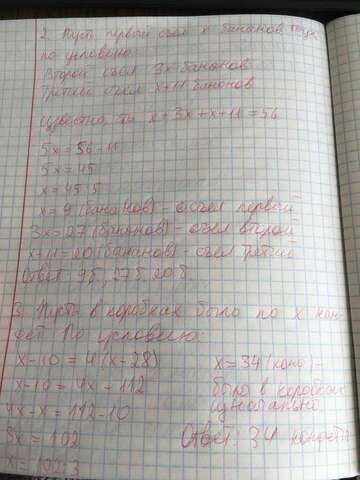 2. Пусть первый съел x бананов тогда
по условию:
Второй съел 3x бананов
Третий съел x+11 бананов
известно x+3x+x+11=56
5x=56-11
5x=45
x=45:5
x=9 (бананов) - съел первый
3x=27 (бананов) - съел второй
x+11=20 (бананов) - съел третий
Ответ: 9б, 27б, 20б.
3. Пусть в коробках было по x кон-
фет. По условию:
x-10=4(x-28)
x-10=4x-112
4x-x=112-10
3x=102
x=102:3
x=34 (конф) -
было в коробках
изначально
Ответ: 34